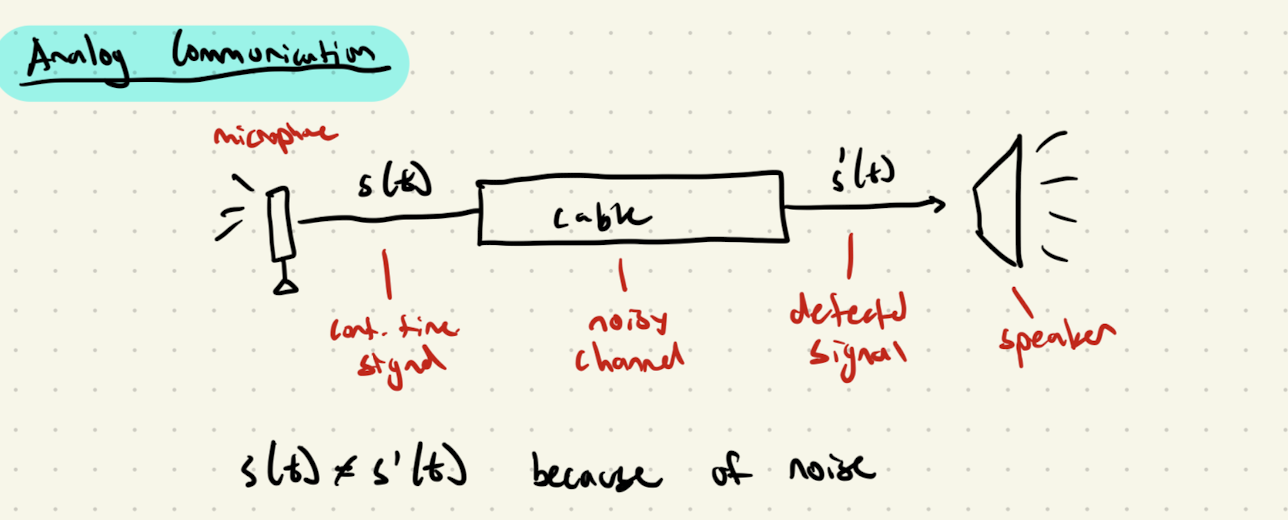 Analog Communication
microphone
s(t)
cable
s'(t)
cont. time
signal
noisy
channel
detected
signal
speaker
s(t) ≠ s'(t) because of noise